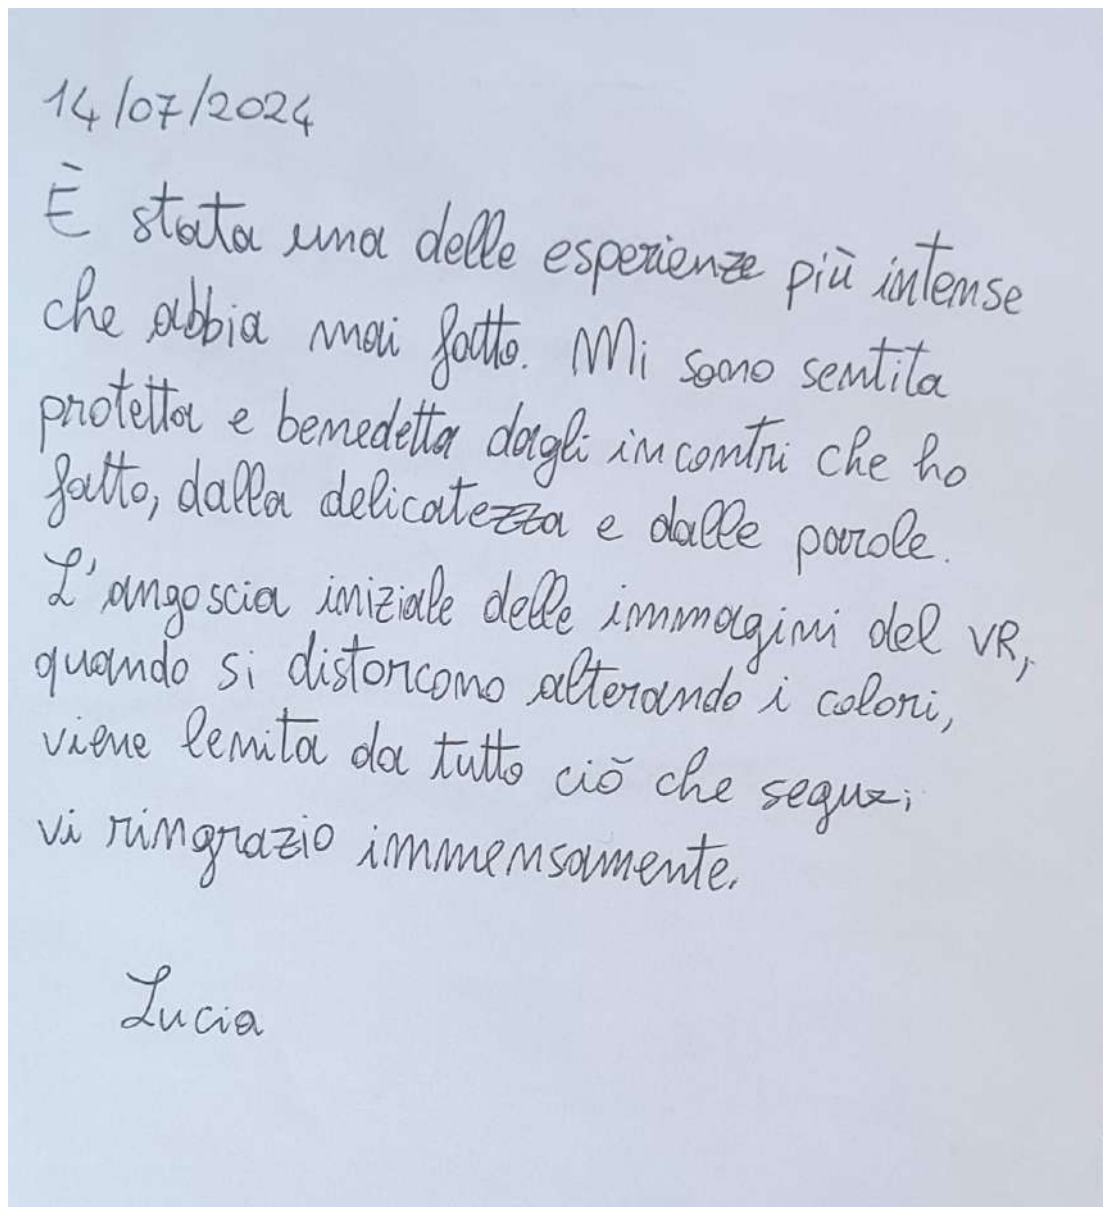 14/07/2024
È stata una delle esperienze più intense
che abbia mai fatto. Mi sono sentita
protetta e benedetta dagli incontri che ho
fatto, dalla delicatezza e dalle parole.
L'angoscia iniziale delle immagini del VR,
quando si distorcono alterando i colori,
viene lenita da tutto ciò che segue;
vi ringrazio immensamente.
Lucia